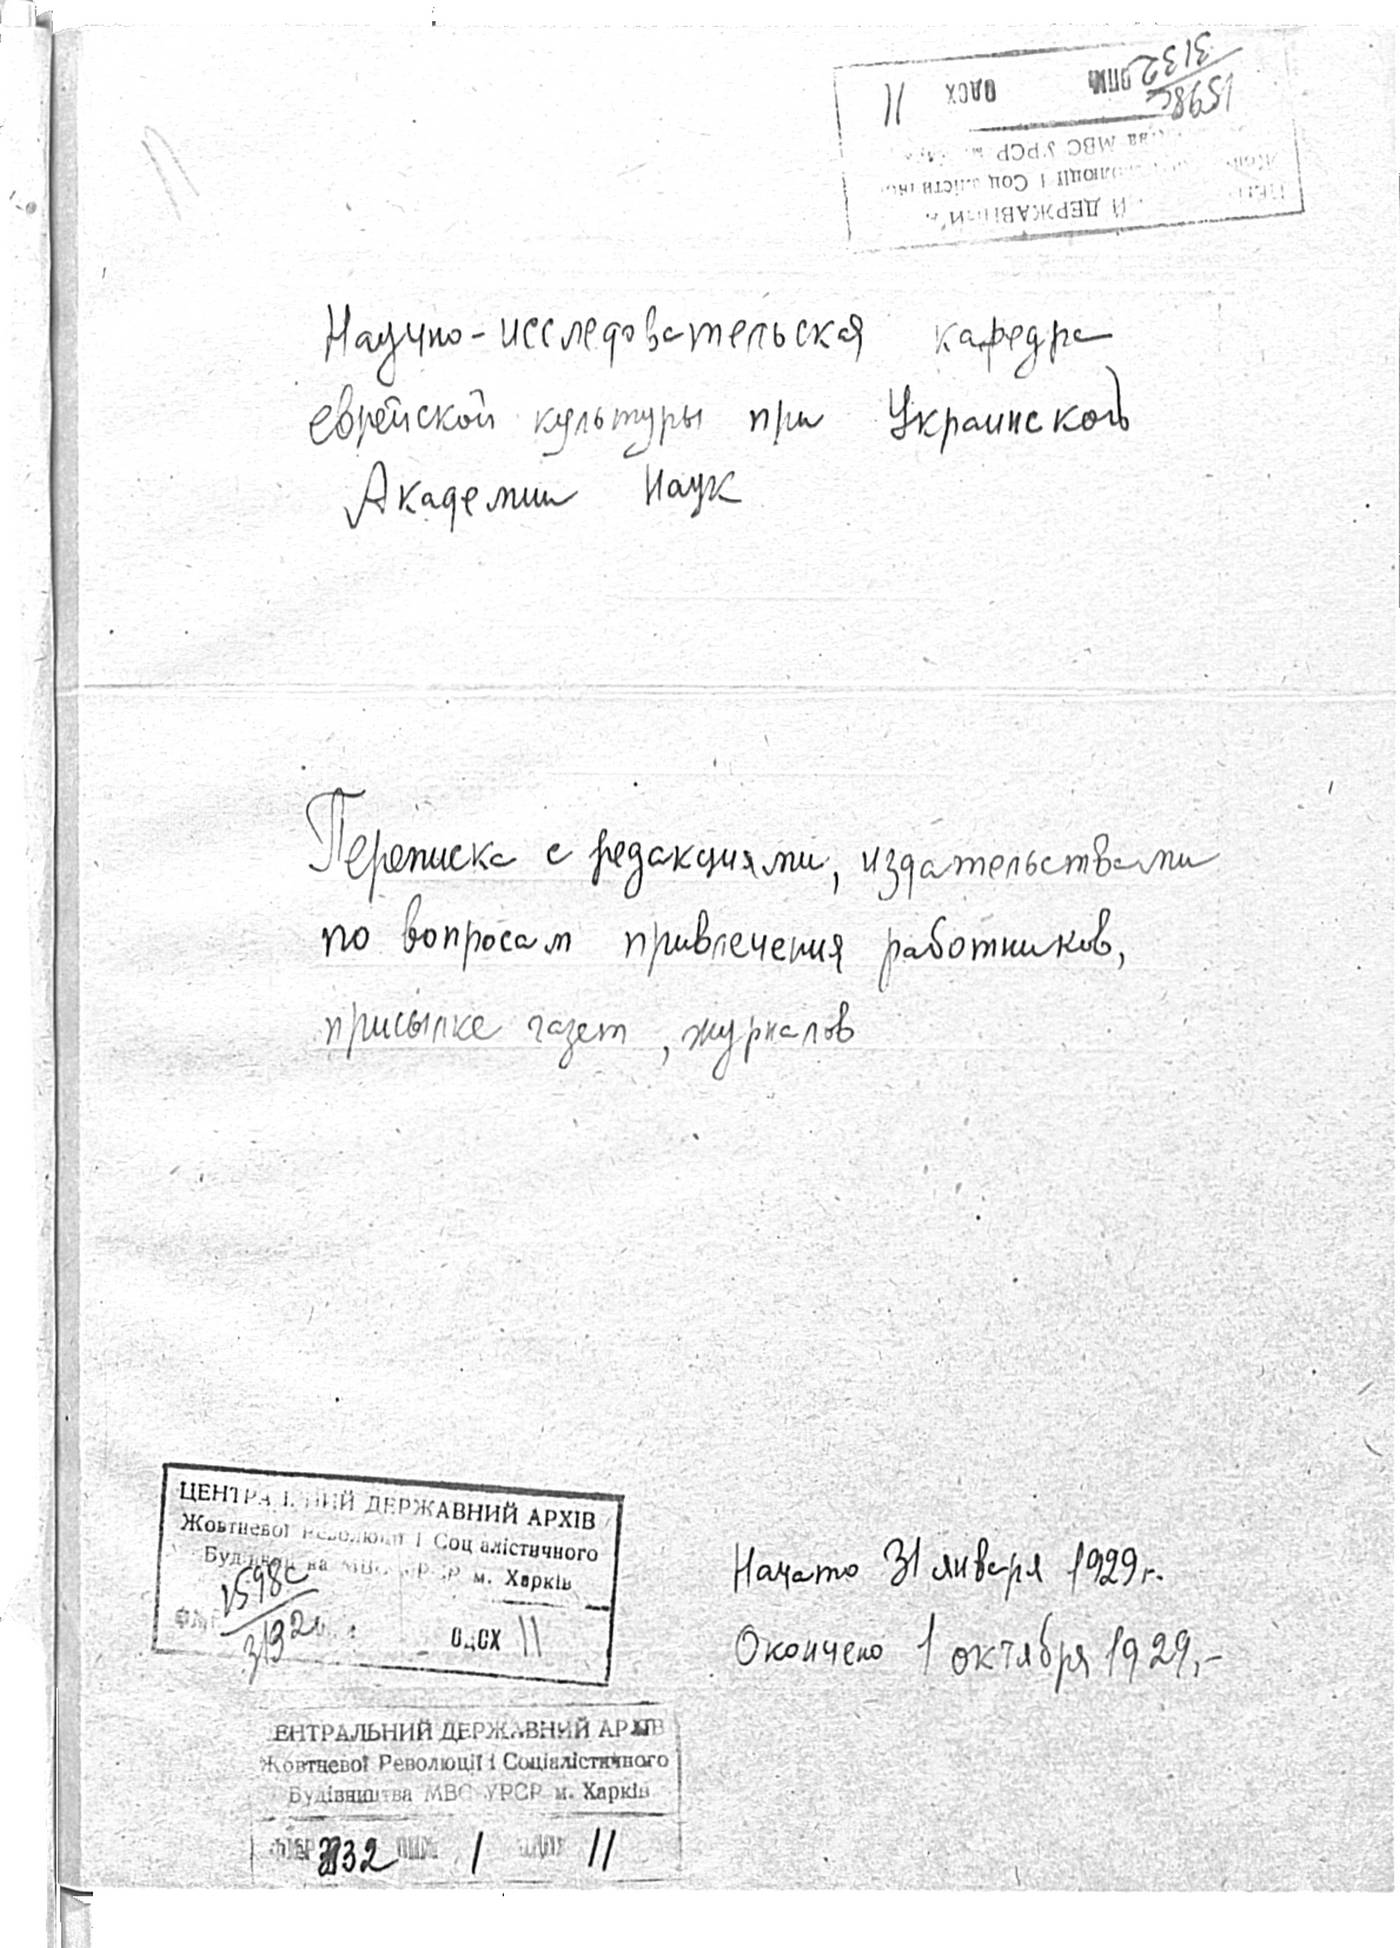 1598с
3132 ОПИС ОДСХ 11
МВС УРСР
Й ДЕРЖАВНИЙ
Научно-исследовательская кафедра
еврейской культуры при Украинской
Академии Наук
Переписка с редакциями, издательствами
по вопросам привлечения работников,
присылке газет, журналов
ЦЕНТРАЛЬНИЙ ДЕРЖАВНИЙ АРХІВ
Жовтневої Революції і Соціалістичного
Будівництва МВС УРСР м. Харків
1598с
3132 ОДСХ 11
Начато 31 января 1929 г.
Окончено 1 октября 1929,-
ЦЕНТРАЛЬНИЙ ДЕРЖАВНИЙ АРХІВ
Жовтневої Революції і Соціалістичного
Будівництва МВС УРСР м. Харків
3132 1 11